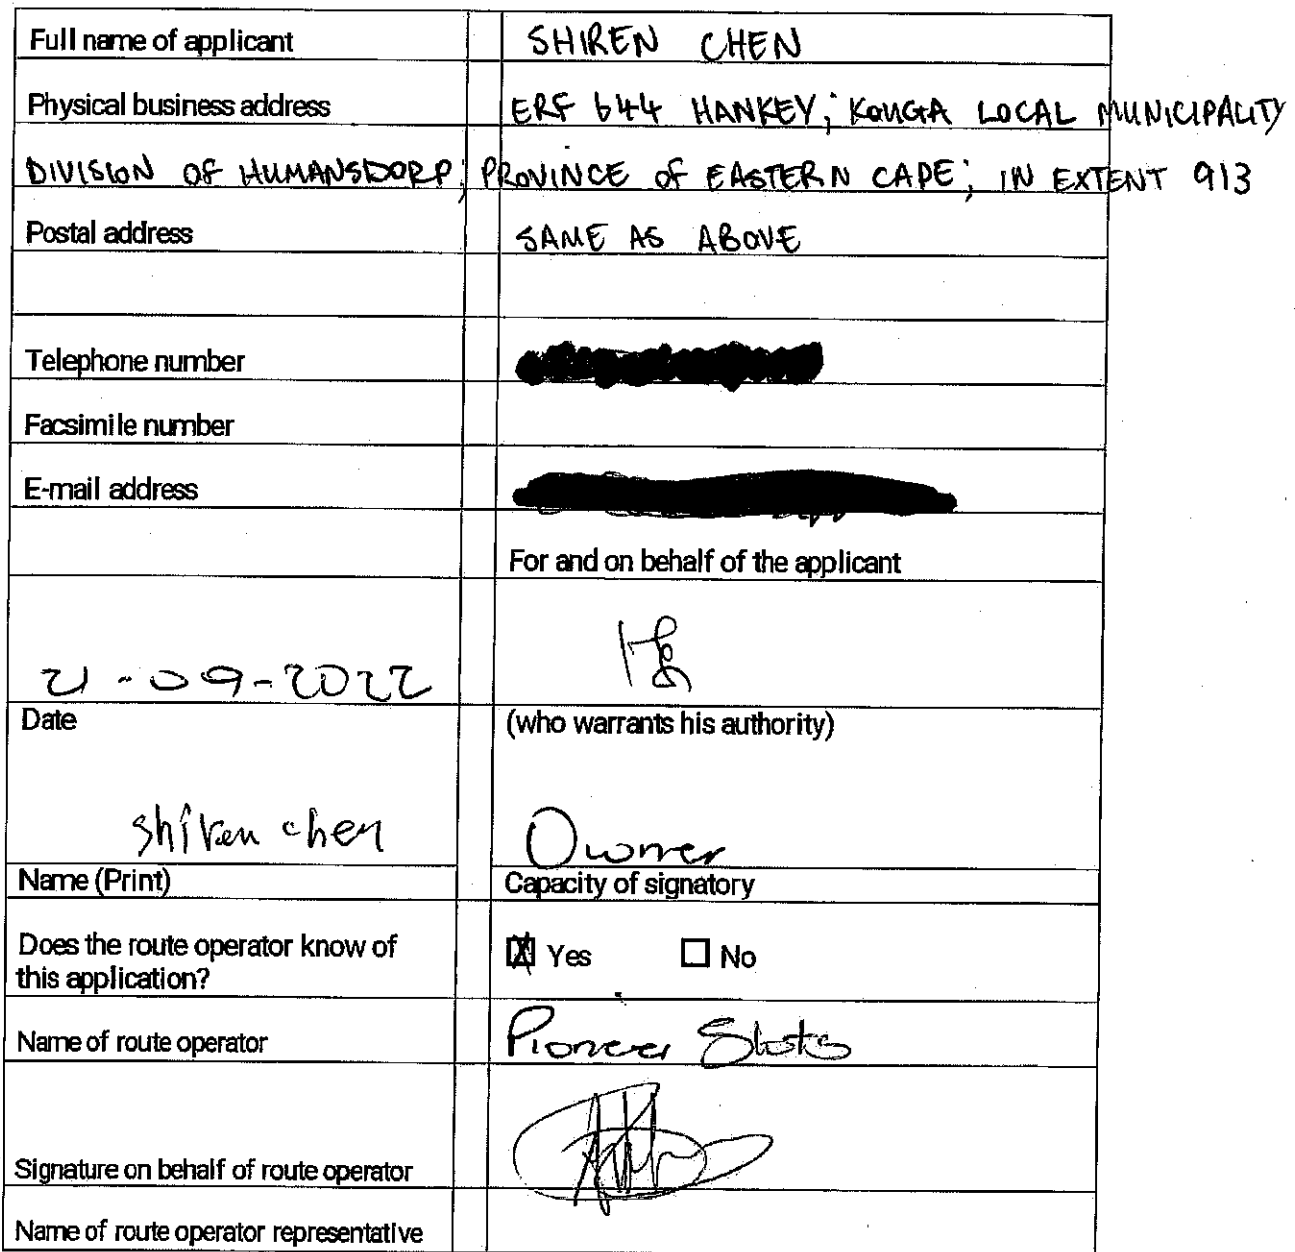 Full name of applicant SHIREN CHEN
Physical business address ERF 644 HANKEY; KOUGA LOCAL MUNICIPALITY
DIVISION OF HUMANSDORP; PROVINCE OF EASTERN CAPE; IN EXTENT 913
Postal address SAME AS ABOVE
Telephone number
Facsimile number
E-mail address
For and on behalf of the applicant
21-09-2022
Date (who warrants his authority)
shiren chen Owner
Name (Print) Capacity of signatory
Does the route operator know of
this application? ☒ Yes ☐ No
Name of route operator Pioneer Slots
Signature on behalf of route operator
Name of route operator representative